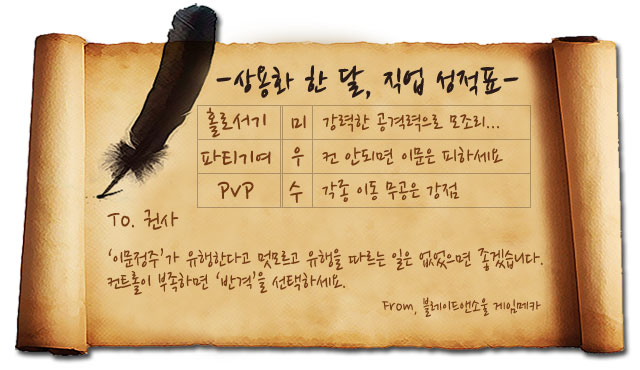 -상용화 한 달, 직업 성적표-
홀로서기 미 강력한 공격력으로 모조리...
파티기여 우 컨 안되면 이문은 피하세요
PVP 수 각종 이동 무공은 강점
To. 권사
'이문정주'가 유행한다고 멋모르고 유행을 따르는 일은 없었으면 좋겠습니다.
컨트롤이 부족하면 '반격'을 선택하세요.
From, 블레이드앤소울 게임메카